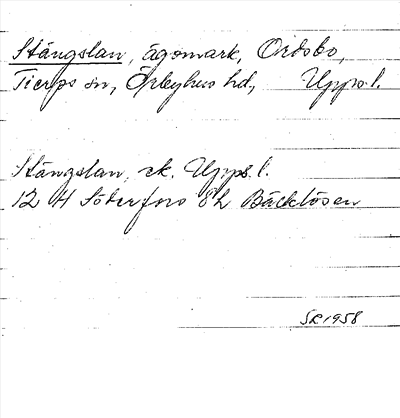 Stängslan, ägomark, Ordsbo,
Tierps sn, Örbyhus hd, Upps.l.
Stängslan, ek. Upps. l.
12 H Söderfors 8 h Bäcklösen
SR 1958